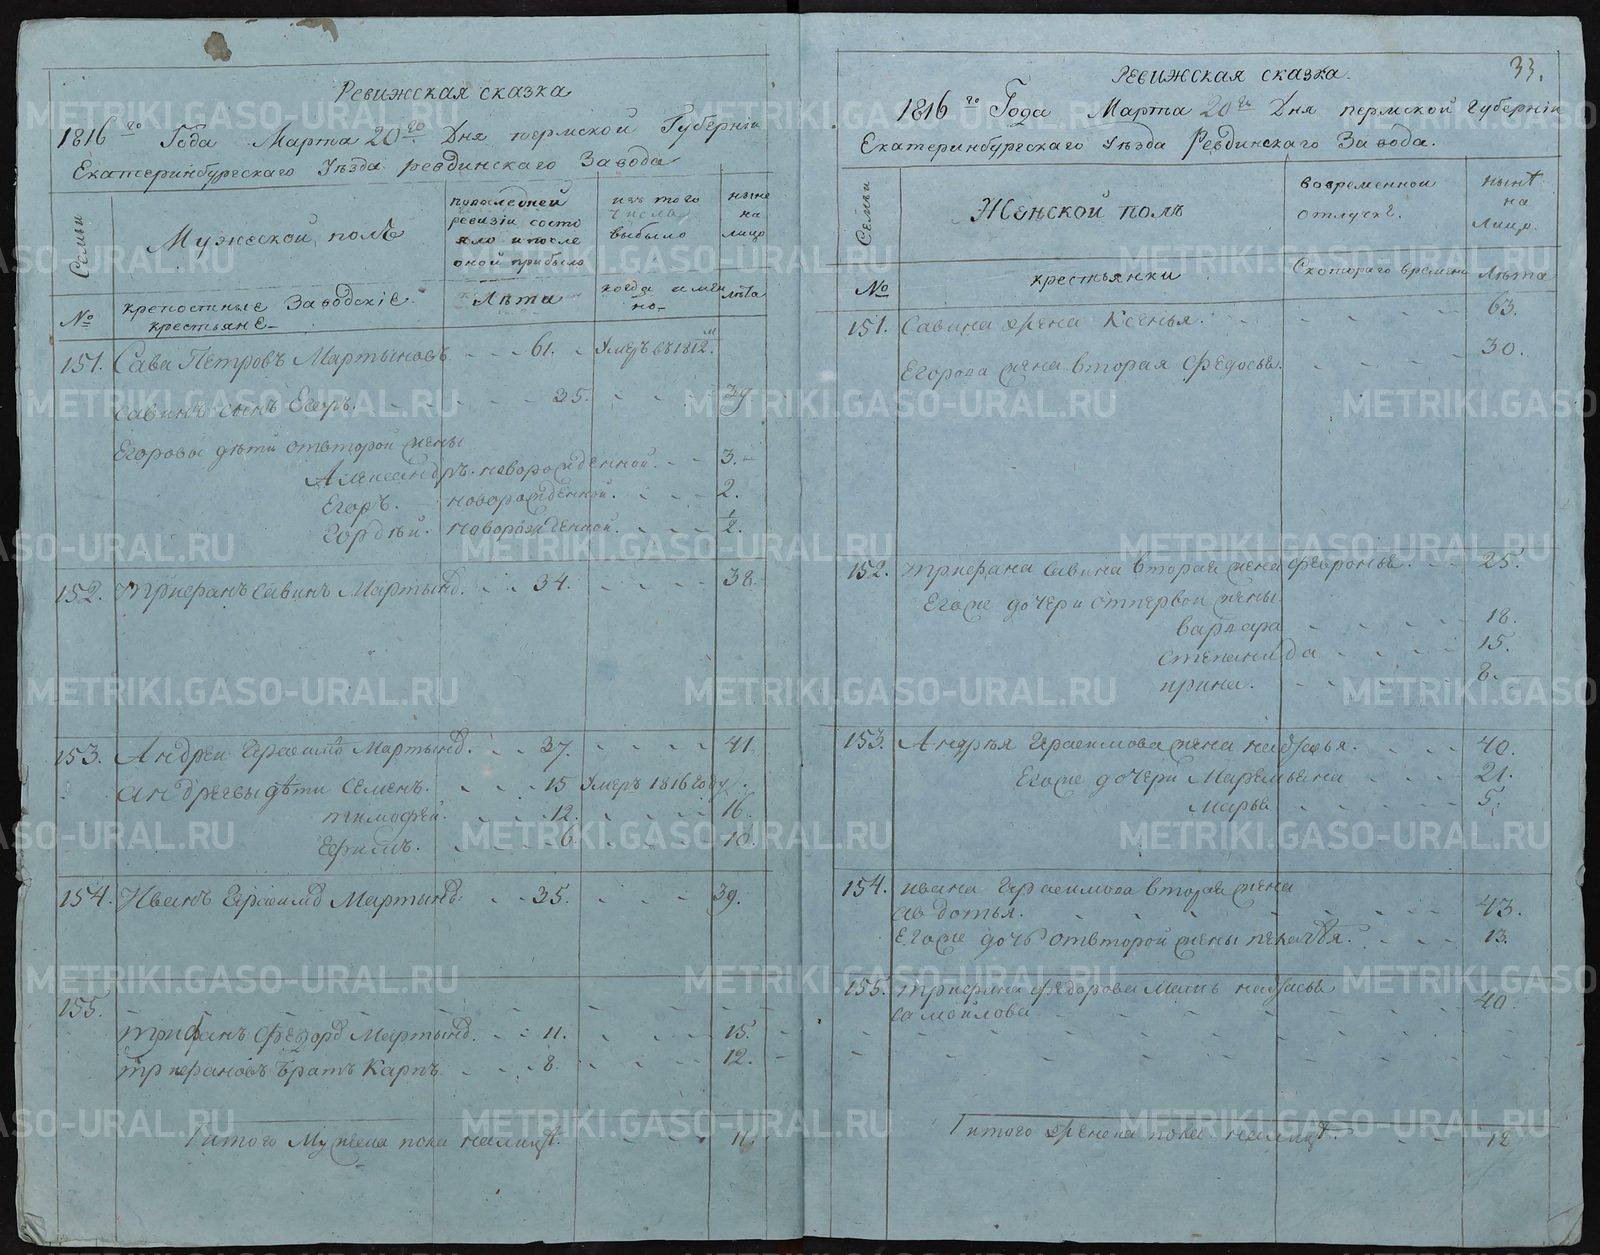 Ревижская сказка
1816го Года Марта 20го Дня пермской Губерніи
Екатеринбургскаго Уѣзда ревдинскаго Завода
Семьи
Мужеской полъ
пупоследней ревизіи состояло и после оной прибыло
изъ того числа выбыло
ныне на лицо
№
крепостные Заводскіе крестьяне
Лѣта
когда имянно
лѣта
151. Сава Петровъ Мартыновъ 61. Умеръ въ 1812.м
савинъ сынъ Егоръ. 35. 39.
Егоровы дѣти отвторой жены
Александръ. новорожденной. 3.
Егоръ. новорожденной. 2.
Гордѣй. новорожденной. 1/2.
152. Трифанъ Савинъ Мартынов. 34. 38.
153. Андреи Герасимов Мартынов. 37. 41.
андреевы дѣти Семенъ. 15 Умеръ 1816 году.
тимофей. 12. 16.
Ефимъ. 6. 10.
154. Иванъ Герасимов Мартынов. 35. 39.
155.
трифанъ Федоров Мартынов. 11. 15.
трифановъ братъ Карпъ. 8. 12.
итого Мужеска пола налицѣ. 11
Ревижская сказка.
33.
1816го Года Марта 20го Дня пермской Губерніи
Екатеринбургскаго Уѣзда Ревдинскаго Завода.
Семьи
Женской полъ
вовременной отлучкѣ.
нынѣ на лицо.
№
крестьянки
Скотораго времени
Лѣта
151. Савина жена Ксенья. 63.
Егорова жена вторая Федосья. 30.
152. трифана Савина вторая жена Февронья. 25.
Егоже дочери отпервой жены.
варвара 18.
степанида 15.
ирина. 8.
153. Андрѣя Герасимова жена настасья. 40.
Егоже дочери Маремьяна 21.
Марья 5.
154. ивана Герасимова вторая жена
авдотья. 43.
Егоже дочь отвторой жены пелагѣя. 13.
155. трифана федорова Мать настасья
самойлова 40
итого женска пола налицѣ. 12
METRIKI.GASO-URAL.RU